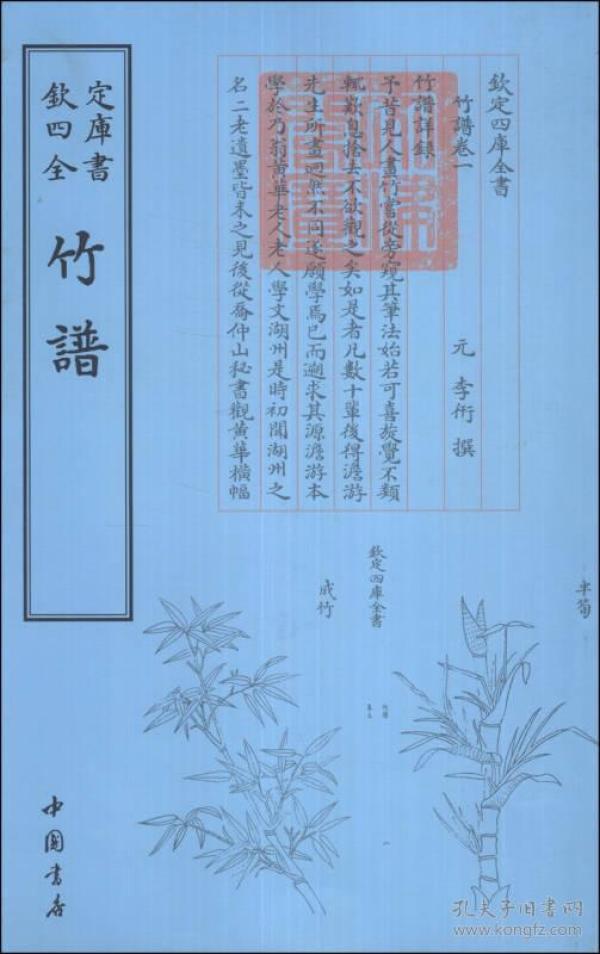 欽定四庫全書
竹譜
中国书店
欽定四庫全書
竹譜卷一
元 李衎 撰
竹譜詳録
予昔見人畫竹嘗從旁窺其筆法始若可喜旋覺不類
輒歎息捨去不欲觀之矣如是者凡數十輩後得澹游
先生所畫迥然不同遂願學焉已而遡求其源澹游本
學於乃翁黄華老人老人學文湖州是時初聞湖州之
名二老遺墨皆未之見後從喬仲山秘書觀黄華横幅
半筍
欽定四庫全書
成竹
孔夫子旧书网
www.kongfz.com